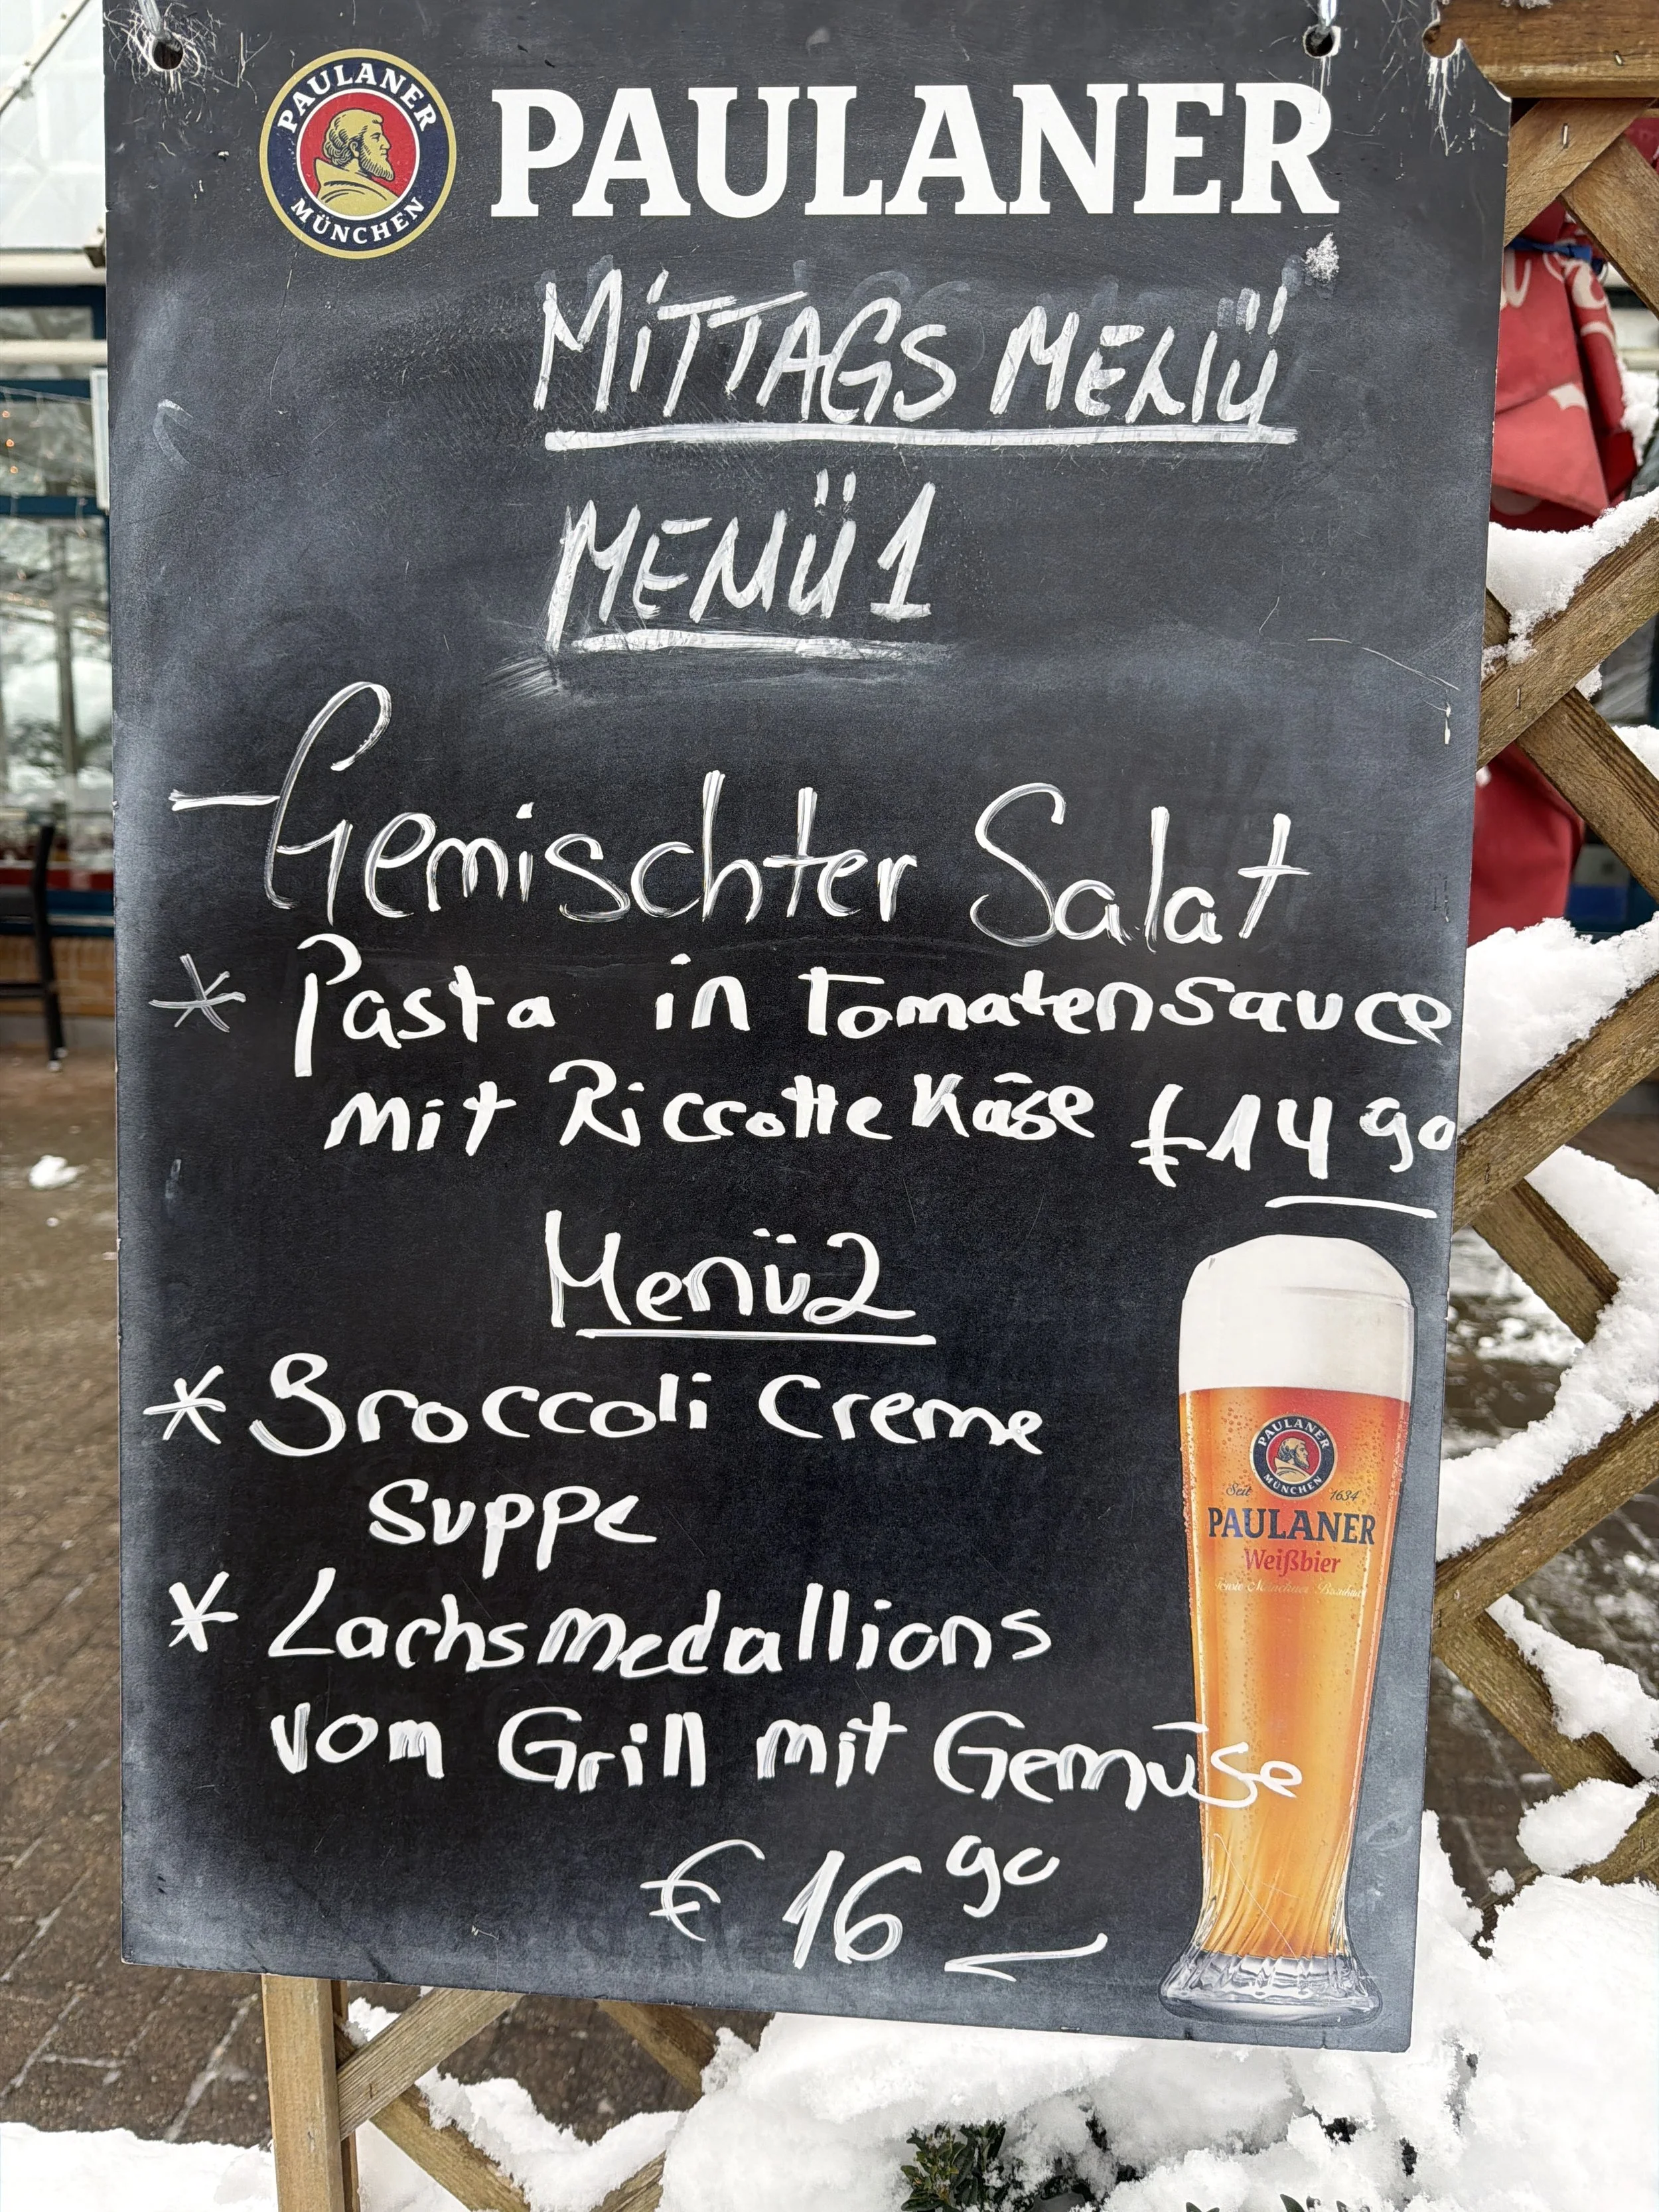 PAULANER
MÜNCHEN
PAULANER
MiTTAGS MENÜ
MENÜ 1
- Gemischter Salat
* Pasta in Tomatensauce
mit Riccotte Käse €14 90
Menü 2
* Broccoli Creme
Suppe
* Lachsmedallions
vom Grill mit Gemüse
€ 16 90
PAULANER
MÜNCHEN
Seit 1634
PAULANER
Weißbier